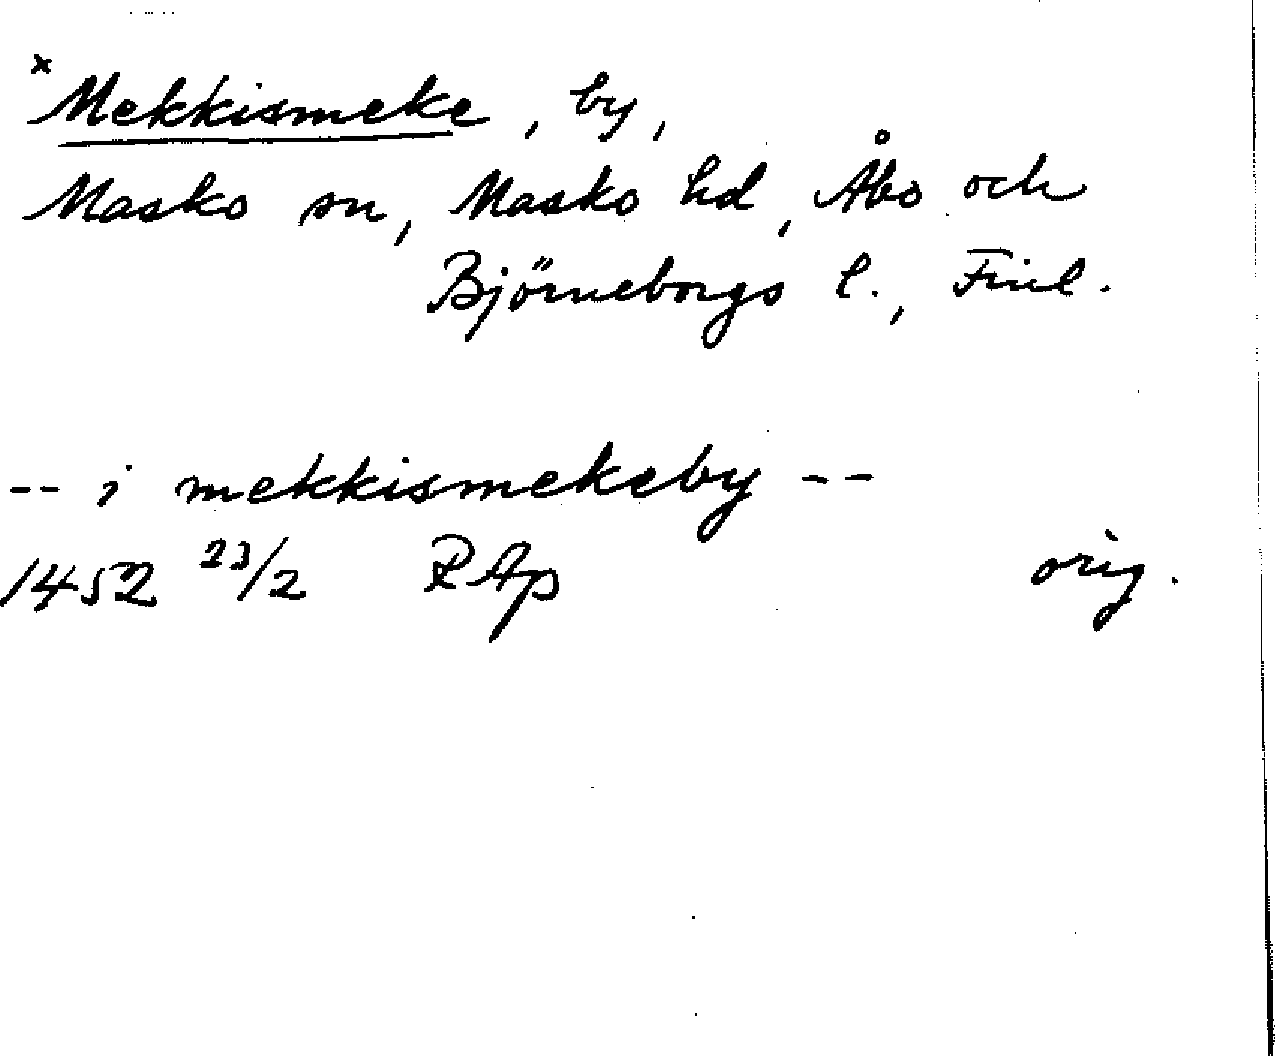 x Mekkismeke, by,
Masko sn, Masko hd, Åbo och
Björneborgs l., Finl.
-- i mekkismekeby --
1452 23/2 RAp orig.